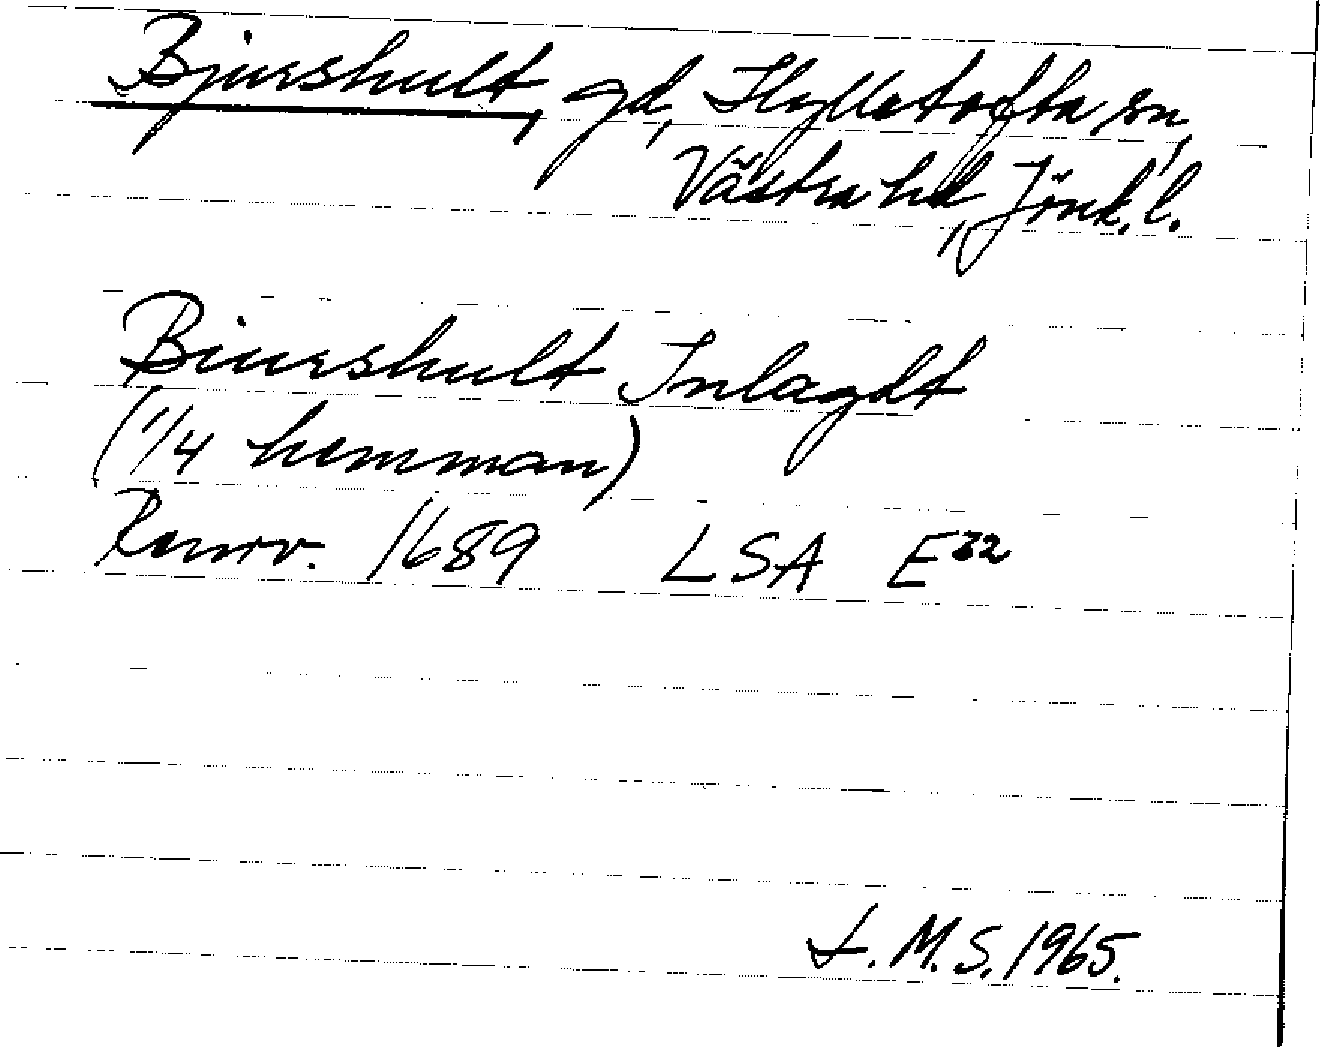 Bjurshult, gd, Hylletofta sn,
Västra hd, Jönk. l.
Biurshult Inlagdt
(1/4 hemman)
Rannv. 1689 LSA E32
L.M.S. 1965.